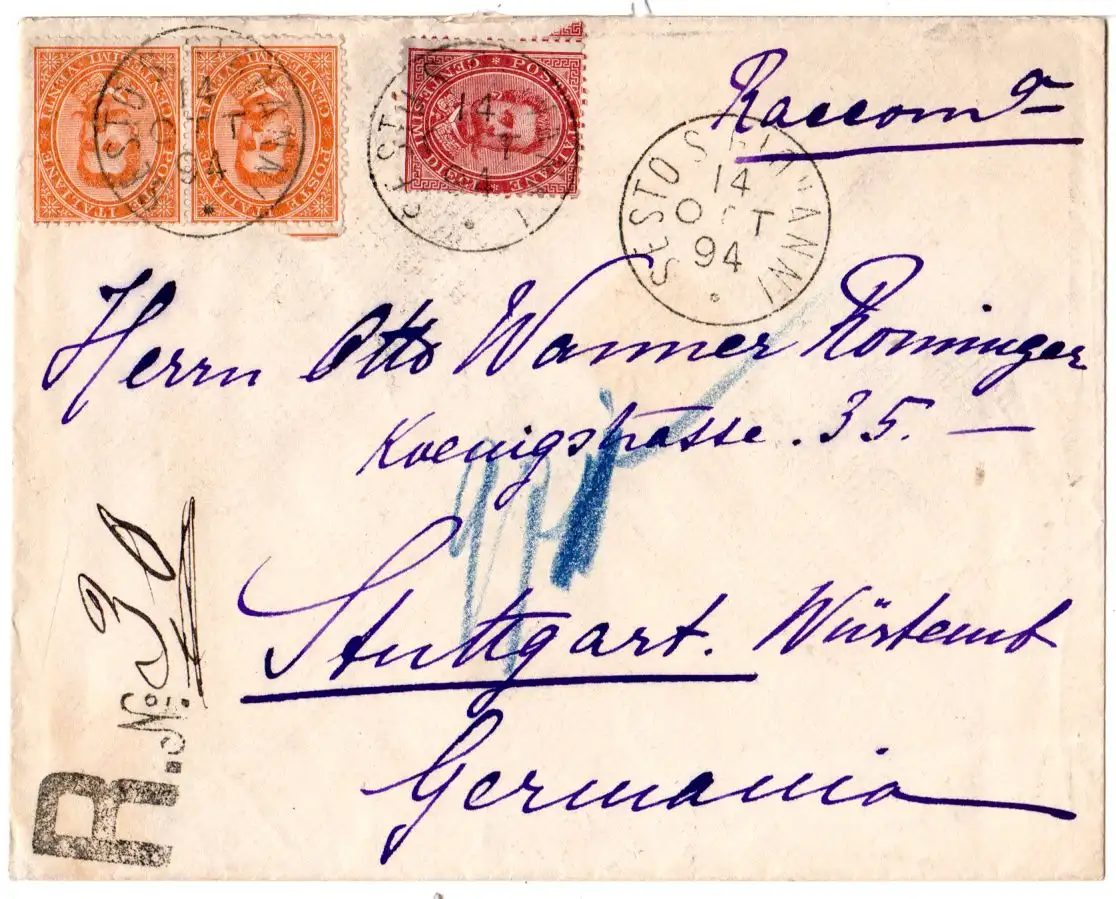 Raccom ta
SESTO S. GIOVANNI
14
OTT
94
POSTE ITALIANE CENTESIMI VENTI
POSTE ITALIANE CENTESIMI VENTI
POSTE ITALIANE CENTESIMI DIECI
Herrn Otto Wanner Rominger
Koenigstrasse. 35. —
Stuttgart. Würtemb
Germania
R. No. 30